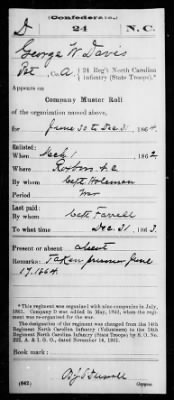 (Confederate.)
D 24 N.C.
George W Davis
Pvt, Co. A 24 Reg't North Carolina Infantry (State Troops).*
Appears on
Company Muster Roll
of the organization named above,
for June 30 to Dec 31, 1864.
Enlisted:
When 1, 1862.
Where Roxboro N.C
By whom Capt Holeman
Period War
Last paid:
By whom Capt Farrell
To what time Dec 31, 1863.
Present or absent absent
Remarks: Taken prisoner June
17, 1864.
*This regiment was organized with nine companies in July,
1861. Company D was added in May, 1862, when the regiment was re-organized for the war.
The designation of the regiment was changed from the 14th
Regiment North Carolina Infantry (Volunteers) to the 24th
Regiment North Carolina Infantry (State Troops) by S. O. No.
222, A. & I. G. O., dated November 14, 1861.
Book mark:
(642)
Copyist.